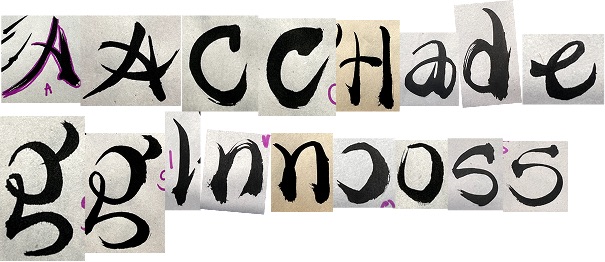 AACCHade
gglnnooss